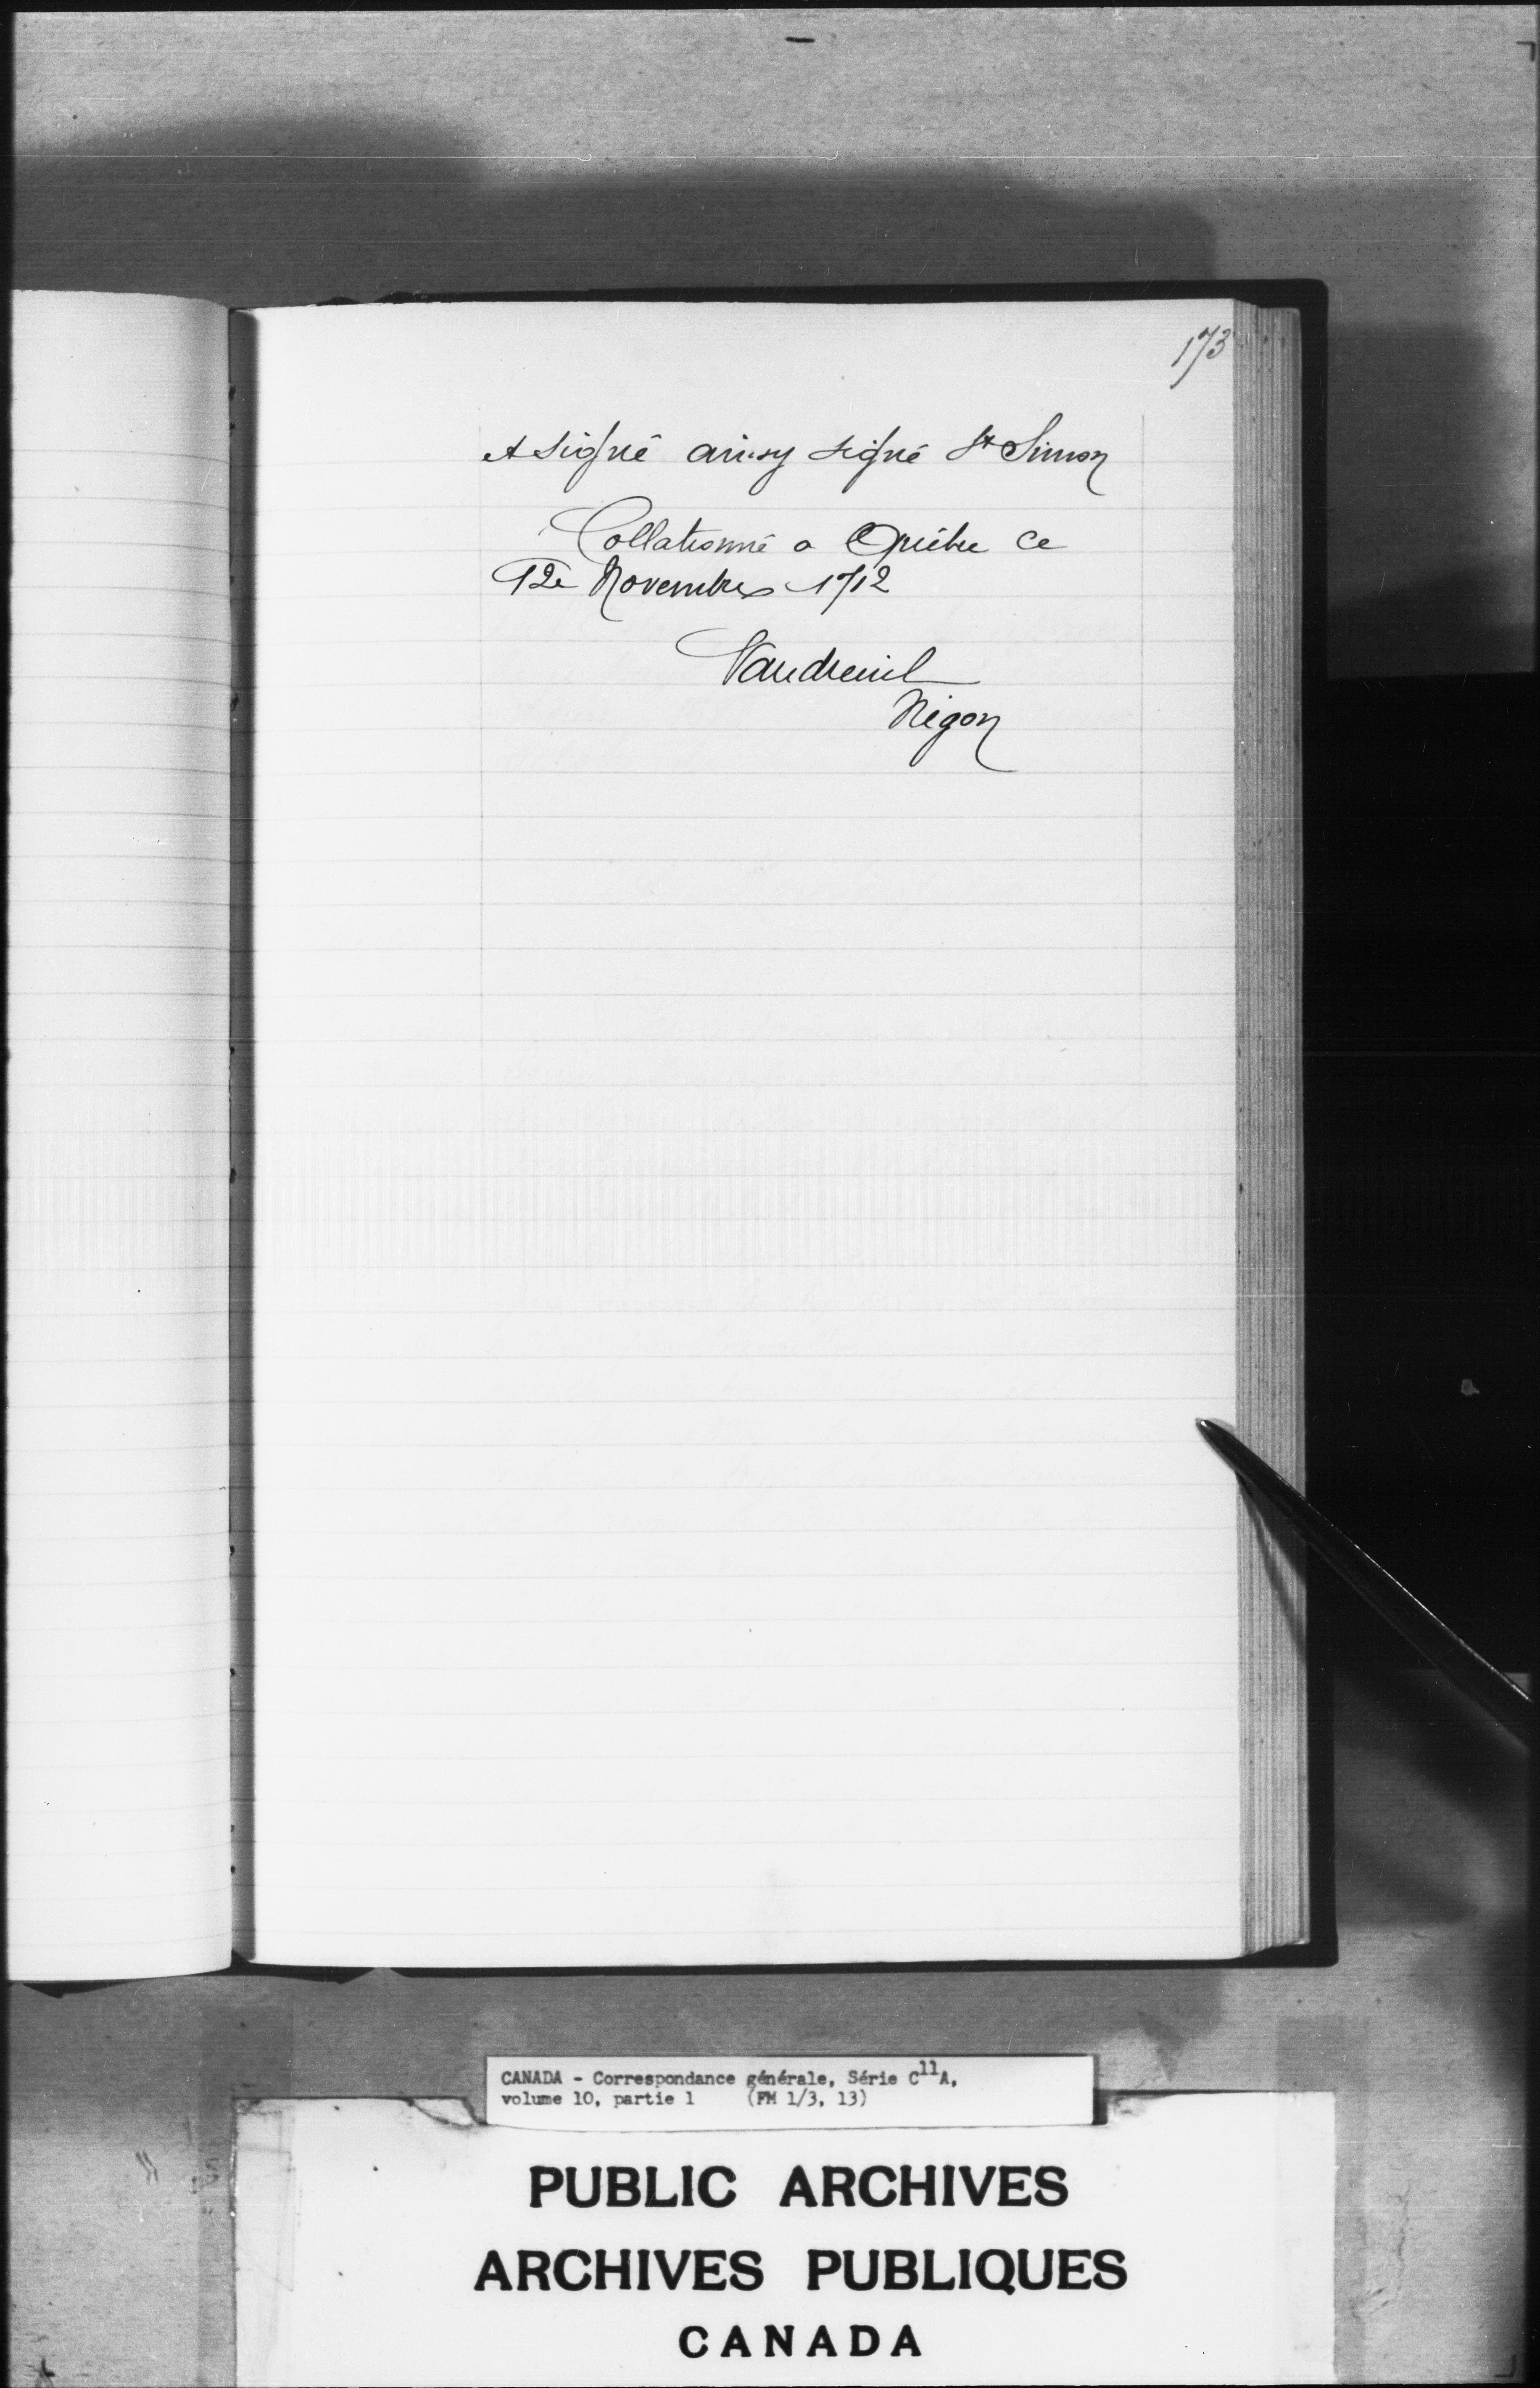 173
et signé ainsy signé St Simon
Collationné a Québec ce
12e Novembre 1712
Vaudreuil
Bégon
CANADA - Correspondance générale, Série C11A,
volume 10, partie 1 (FM 1/3, 13)
PUBLIC ARCHIVES
ARCHIVES PUBLIQUES
CANADA